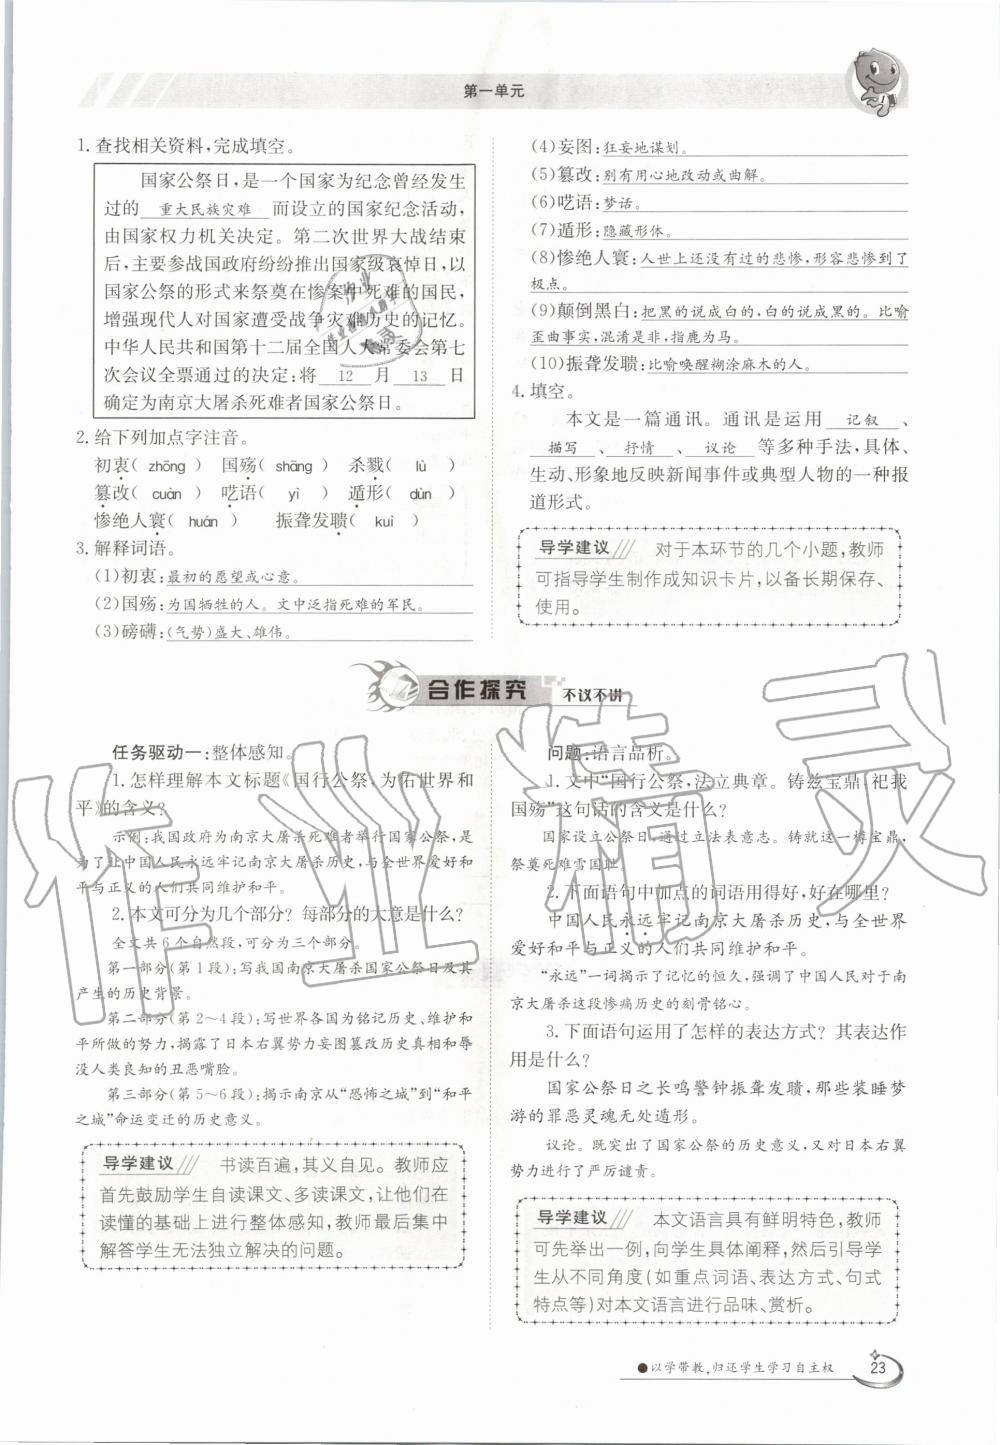 第一单元
1. 查找相关资料,完成填空。
国家公祭日,是一个国家为纪念曾经发生
过的 重大民族灾难 而设立的国家纪念活动,
由国家权力机关决定。第二次世界大战结束
后,主要参战国政府纷纷推出国家级哀悼日,以
国家公祭的形式来祭奠在惨案中死难的国民,
增强现代人对国家遭受战争灾难历史的记忆。
中华人民共和国第十二届全国人大常委会第七
次会议全票通过的决定:将 12 月 13 日
确定为南京大屠杀死难者国家公祭日。
2. 给下列加点字注音。
初衷( zhōng ) 国殇( shāng ) 杀戮( lù )
篡改( cuàn ) 呓语( yì ) 遁形( dùn )
惨绝人寰( huán ) 振聋发聩( kuì )
3. 解释词语。
(1)初衷:最初的愿望或心意。
(2)国殇:为国牺牲的人。文中泛指死难的军民。
(3)磅礴:(气势)盛大、雄伟。
(4)妄图:狂妄地谋划。
(5)篡改:别有用心地改动或曲解。
(6)呓语:梦话。
(7)遁形:隐藏形体。
(8)惨绝人寰:人世上还没有过的悲惨,形容悲惨到了
极点。
(9)颠倒黑白:把黑的说成白的,白的说成黑的。比喻
歪曲事实,混淆是非,指鹿为马。
(10)振聋发聩:比喻唤醒糊涂麻木的人。
4. 填空。
本文是一篇通讯。通讯是运用 记叙 、
描写 、 抒情 、 议论 等多种手法,具体、
生动、形象地反映新闻事件或典型人物的一种报
道形式。
导学建议 对于本环节的几个小题,教师
可指导学生制作成知识卡片,以备长期保存、
使用。
合作探究 不议不讲
任务驱动一:整体感知。
1. 怎样理解本文标题《国行公祭,为佑世界和
平》的含义?
示例:我国政府为南京大屠杀死难者举行国家公祭,是
为了让中国人民永远牢记南京大屠杀历史,与全世界爱好和
平与正义的人们共同维护和平。
2. 本文可分为几个部分? 每部分的大意是什么?
全文共6个自然段,可分为三个部分。
第一部分(第1段):写我国南京大屠杀国家公祭日及其
产生的历史背景。
第二部分(第2~4段):写世界各国为铭记历史、维护和
平所做的努力,揭露了日本右翼势力妄图篡改历史真相和辱
没人类良知的丑恶嘴脸。
第三部分(第5~6段):揭示南京从“恐怖之城”到“和平
之城”命运变迁的历史意义。
导学建议 书读百遍,其义自见。教师应
首先鼓励学生自读课文、多读课文,让他们在
读懂的基础上进行整体感知,教师最后集中
解答学生无法独立解决的问题。
问题:语言品析。
1. 文中“国行公祭,法立典章。铸兹宝鼎,祀我
国殇”这句话的含义是什么?
国家设立公祭日,通过立法表意志。铸就这一樽宝鼎,
祭奠死难雪国耻。
2. 下面语句中加点的词语用得好,好在哪里?
中国人民永远牢记南京大屠杀历史,与全世界
爱好和平与正义的人们共同维护和平。
“永远”一词揭示了记忆的恒久,强调了中国人民对于南
京大屠杀这段惨痛历史的刻骨铭心。
3. 下面语句运用了怎样的表达方式? 其表达作
用是什么?
国家公祭日之长鸣警钟振聋发聩,那些装睡梦
游的罪恶灵魂无处遁形。
议论。既突出了国家公祭的历史意义,又对日本右翼
势力进行了严厉谴责。
导学建议 本文语言具有鲜明特色,教师
可先举出一例,向学生具体阐释,然后引导学
生从不同角度(如重点词语、表达方式、句式
特点等)对本文语言进行品味、赏析。
●以学带教,归还学生学习自主权
23
作业精灵